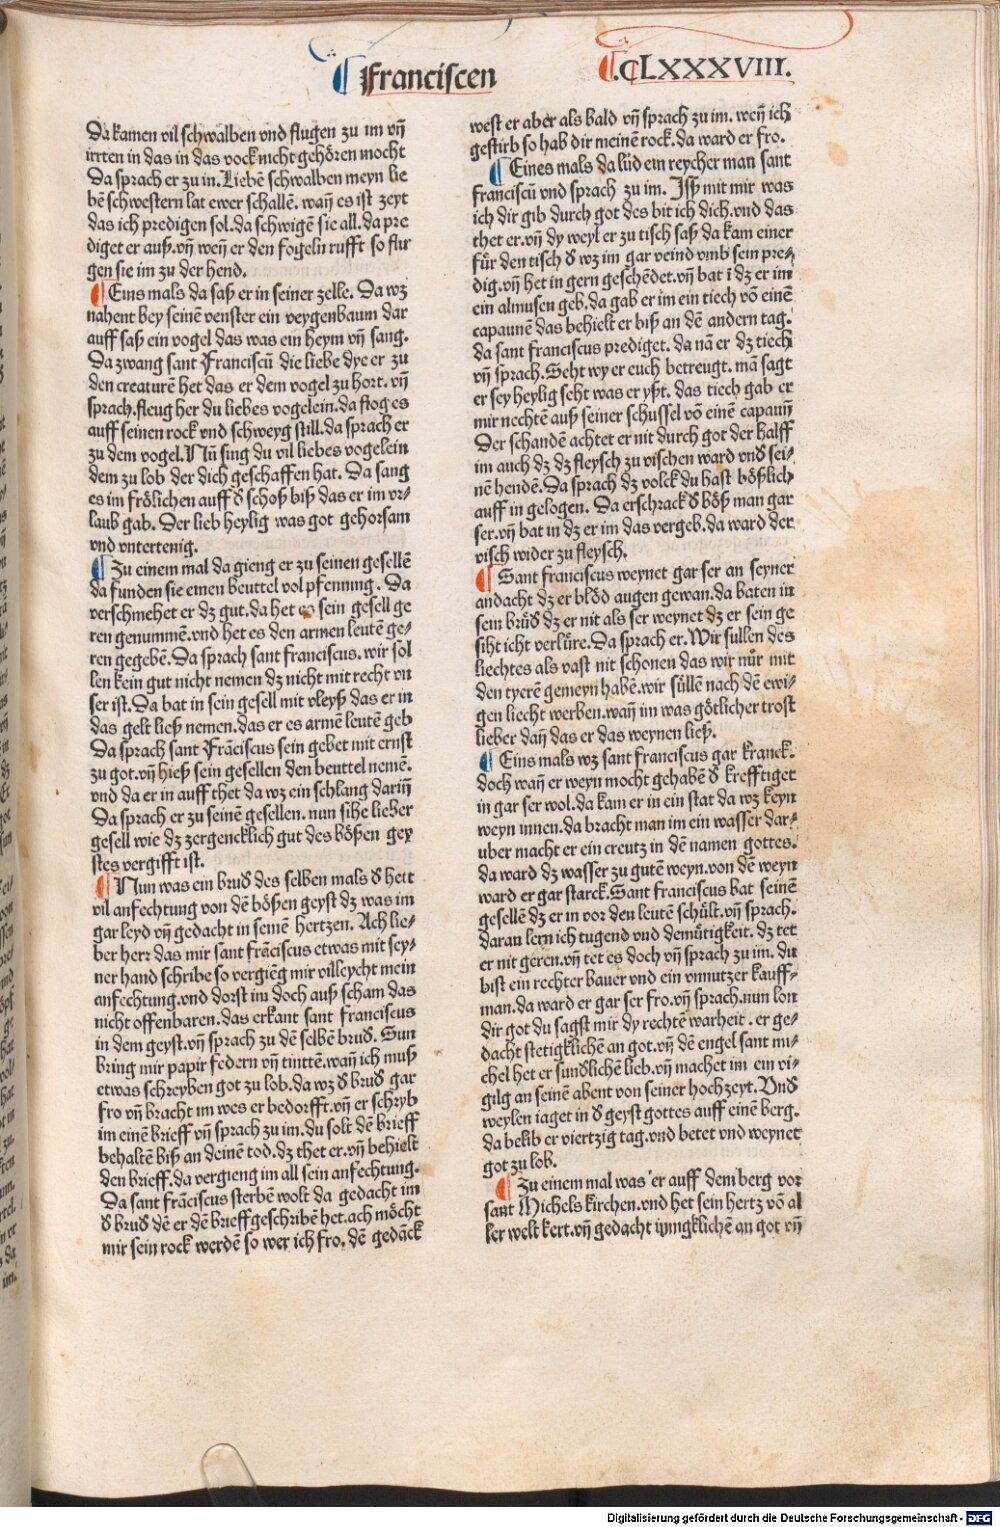 ¶ Franciscen
¶.CLXXXVIII.
Da kamen vil schwalben vnd flugen zu im vñ
irrten in das in das vock nicht gehören mocht
Da sprach er zu in. Liebē schwalben meyn lie
bē schwestern lat ewer schallē. wañ es ist zeyt
das ich predigen sol. da schwigē sie all. da pre
diget er auß. vñ weñ er den fogeln rufft so flu
gen sie im zu der hend.
¶ Eins mals da saß er in seiner zelle. Da wz
nahent bey seinē venster ein veygenbaum dar
auff saß ein vogel das was ein heym vñ sang.
Da zwang sant Franciscū die liebe dye er zu
den creaturē het das er dem vogel zu hort. vñ
sprach. fleug her du liebes vogelein. da flog es
auff seinen rock vnd schweyg still. da sprach er
zu dem vogel. Nū sing du vil liebes vogelein
dem zu lob der dich geschaffen hat. Da sang
es im frölichen auff d schoß biß das er im vr-
laub gab. Der lieb heylig was got gehorsam
vnd vntertenig.
¶ Zu einem mal da gieng er zu seinen gesellē
da funden sie einen beuttel vol pfenning. Da
verschmehet er dz gut. da het es sein gesell ge
ren genummē. vnd het es den armen leutē ge-
ren gegebē. Da sprach sant franciscus. wir sol
len kein gut nicht nemen dz nicht mit recht vn
ser ist. Da bat in sein gesell mit vleyß das er in
das gelt ließ nemen. das er es armē leutē geb
Da sprach sant Frāciscus sein gebet mit ernst
zu got. vñ hieß sein gesellen den beuttel nemē.
vnd da er in auff thet da wz ein schlang dariñ
Da sprach er zu seinē gesellen. nun sihe lieber
gesell wie dz zergencklich gut des bößen gey
stes vergifft ist.
¶ Nun was ein brud des selben mals d hett
vil anfechtung von dē bößen geyst dz was im
gar leyd vñ gedacht in seinē hertzen. Ach lie-
ber herr das mir sant frāciscus etwas mit sey-
ner hand schribe so vergieng mir villeycht mein
anfechtung. vnd dorst im doch auß scham das
nicht offenbaren. das erkant sant franciscus
in dem geyst. vñ sprach zu dē selbē brud. Sun
bring mir papir federn vñ tinttē. wañ ich muß
etwas schreyben got zu lob. da wz d brud gar
fro vñ bracht im wes er bedorfft. vñ er schryb
im einē brieff vñ sprach zu im. du solt dē brieff
behaltē biß an deinē tod. dz thet er. vñ behielt
den brieff. da vergieng im all sein anfechtung.
Da sant frāciscus sterbē wolt da gedacht im
d brud dē er dē brieff geschribē het. ach möcht
mir sein rock werdē so wer ich fro. dē gedāck
west er aber als bald vñ sprach zu im. weñ ich
gestirb so hab dir meinē rock. da ward er fro.
¶ Eines mals da lud ein reycher man sant
franciscū vnd sprach zu im. Jß mit mir was
ich dir gib durch got des bit ich dich. vnd das
thet er. vñ dy weyl er zu tisch saß da kam einer
für den tisch d wz im gar veind vmb sein pre-
dig. vñ het in gern geschēdet. vñ bat i dz er im
ein almusen geb. da gab er im ein tiech vō einē
capaunē das behielt er biß an dē andern tag.
da sant franciscus prediget. da nā er dz tiech
vñ sprach. Seht wy er euch betreugt. mā sagt
er sey heylig seht was er yßt. das tiech gab er
mir nechtē auß seiner schussel vō einē capauñ
Der schandē achtet er nit durch got der halff
im auch dz dz fleysch zu vischen ward vnd sei-
nē hendē. Da sprach dz volck du hast bößlich
auff in gelogen. Da erschrack d böß man gar
ser. vñ bat in dz er im das vergeb. da ward der
visch wider zu fleysch.
¶ Sant franciscus weynet gar ser an seyner
andacht dz er blöd augen gewan. da baten in
sein brud dz er nit als ser weynet dz er sein ge
siht icht verlüre. Da sprach er. Wir sullen des
liechtes als vast nit schonen das wir nür mit
den tyerē gemeyn habē. wir süllē nach dē ewi-
gen liecht werben. wañ im was götlicher trost
lieber dañ das er das weynen ließ.
¶ Eins mals wz sant franciscus gar kranck.
doch wañ er weyn mocht gehabē d krefftiget
in gar ser wol. da kam er in ein stat da wz keyn
weyn innen. da bracht man im ein wasser dar-
uber macht er ein creutz in dē namen gottes.
da ward dz wasser zu gutē weyn. von dē weyn
ward er gar starck. Sant franciscus bat seinē
gesellē dz er in vor den leutē schült. vñ sprach.
daran lern ich tugend vnd demütigkeit. dz tet
er nit geren. vñ tet es doch vñ sprach zu im. du
bist ein rechter bauer vnd ein vnnutzer kauff-
man. da ward er gar ser fro. vñ sprach. nun lon
dir got du sagst mir dy rechtē warheit. er ge-
dacht stetigklichē an got. vñ dē engel sant mi-
chel het er sundlichē lieb. vñ machet im ein vi-
gilg an seinē abent von seiner hochzeyt. Vnd
weylen iaget in d geyst gottes auff einē berg.
da belib er viertzig tag. vnd betet vnd weynet
got zu lob.
¶ Zu einem mal was er auff dem berg vor
sant Michels kirchen. vnd het sein hertz vō al
ler welt kert. vñ gedacht ynnigklichē an got vñ
Digitalisierung gefördert durch die Deutsche Forschungsgemeinschaft - DFG